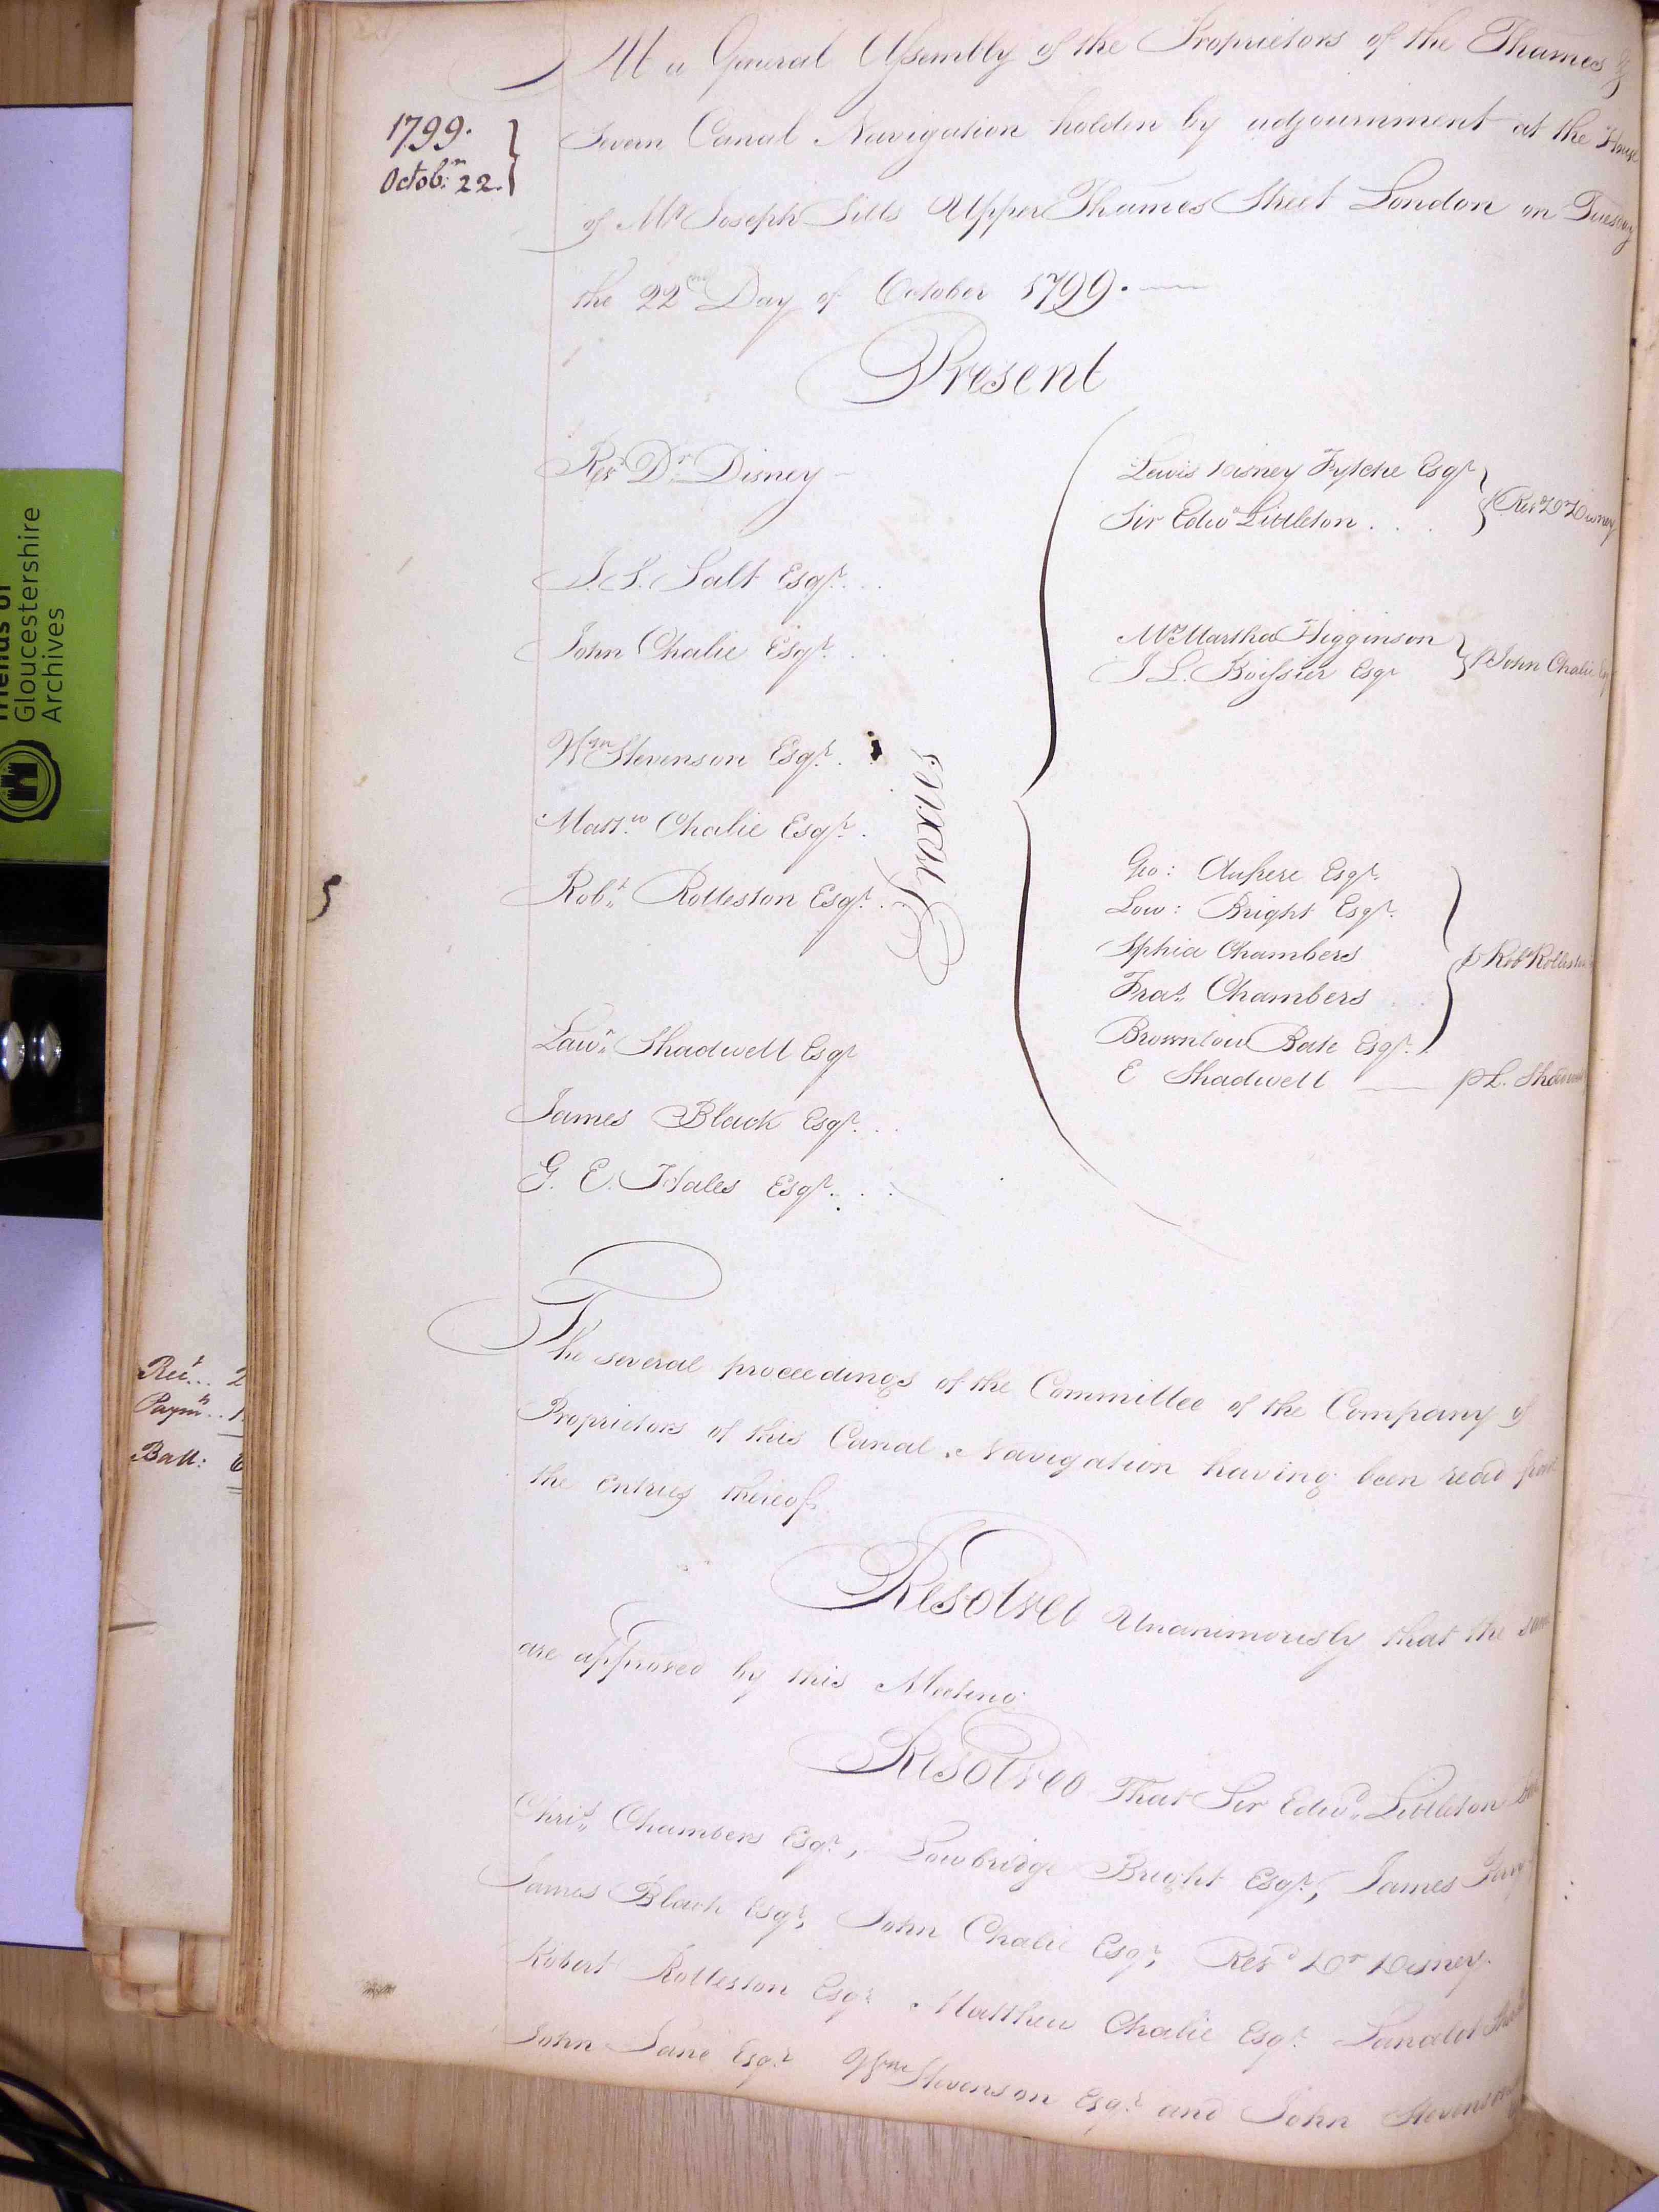 At a General Assembly of the Proprietors of the Thames &
1799.
Octob.r 22.
Severn Canal Navigation holden by adjournment at the House
of Mr Joseph Sills Upper Thames Street London on Tuesday
the 22nd Day of October 1799.
Present
Revd Dr Disney
J. S. Salt Esqr.
John Chalie Esqr.
Wm Stevenson Esqr.
Matt.w Chalie Esqr.
Robt. Rolleston Esqr.
Law. Shadwell Esqr
James Black Esqr.
G. E. Hales Esqr.
Proxies
Lewis Disney Fytche Esqr
Sir Edwd Littleton
Revd Dr Disney
Mrs Martha Higginson
J L. Boissier Esqr
p John Chalie
Geo: Aufrere Esqr.
Low: Bright Esqr.
Sphia Chambers
Fras. Chambers
p Robt Rolleston
Brownlow Bate Esqr.
E Shadwell p L.
5
The several proceedings of the Committee of the Company of
Proprietors of this Canal Navigation having been read from
the entries thereof.
Resolved Unanimously that the same
are approved by this Meeting
Resolved That Sir Edwd. Littleton
Chrisr. Chambers Esqr., Lowbridge Bright Esqr., James
James Black Esqr, John Chalie Esqr, Revd Dr Disney.
Robert Rolleston Esqr Matthew Chalie Esqr. Lancelot
John Lane Esqr Wm Stevenson Esqr and John Stevenson
Rect... 2
Paymts.. 1
Ball: 6
Friends of
Gloucestershire
Archives